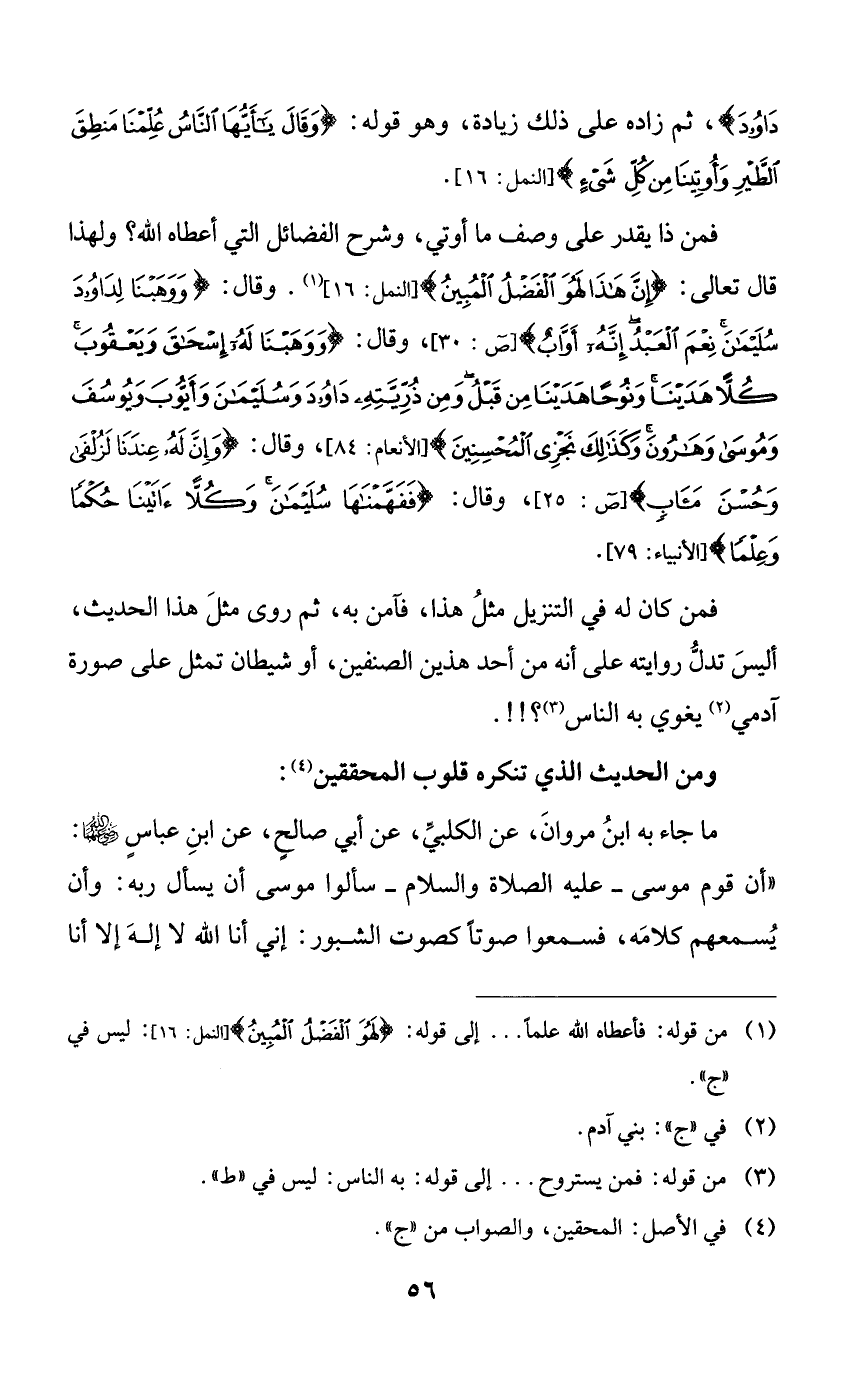 دَاوُۥدَ﴾، ثم زاده على ذلك زيادة، وهو قوله: ﴿وَقَالَ يَـٰٓأَيُّهَا ٱلنَّاسُ عُلِّمْنَا مَنطِقَ
ٱلطَّيْرِ وَأُوتِينَا مِن كُلِّ شَىْءٍ﴾[النمل: ١٦].
فمن ذا يقدر على وصف ما أوتي، وشرح الفضائل التي أعطاه الله؟ ولهذا
قال تعالى: ﴿إِنَّ هَـٰذَا لَهُوَ ٱلْفَضْلُ ٱلْمُبِينُ﴾[النمل: ١٦](١). وقال: ﴿وَوَهَبْنَا لِدَاوُۥدَ
سُلَيْمَـٰنَ ۚ نِعْمَ ٱلْعَبْدُ ۖ إِنَّهُۥٓ أَوَّابٌ﴾[صٓ : ٣٠]، وقال: ﴿وَوَهَبْنَا لَهُۥٓ إِسْحَـٰقَ وَيَعْقُوبَ ۚ
كُلًّا هَدَيْنَا ۚ وَنُوحًا هَدَيْنَا مِن قَبْلُ ۖ وَمِن ذُرِّيَّتِهِۦ دَاوُۥدَ وَسُلَيْمَـٰنَ وَأَيُّوبَ وَيُوسُفَ
وَمُوسَىٰ وَهَـٰرُونَ ۚ وَكَذَٰلِكَ نَجْزِى ٱلْمُحْسِنِينَ﴾[الأنعام: ٨٤]، وقال: ﴿وَإِنَّ لَهُۥ عِندَنَا لَزُلْفَىٰ
وَحُسْنَ مَـَٔابٍ﴾[صٓ : ٢٥]، وقال: ﴿فَفَهَّمْنَـٰهَا سُلَيْمَـٰنَ ۚ وَكُلًّا ءَاتَيْنَا حُكْمًا
وَعِلْمًا﴾[الأنبياء: ٧٩].
فمن كان له في التنزيل مثلُ هذا، فآمن به، ثم روى مثلَ هذا الحديث،
أليسَ تدلُّ روايته على أنه من أحد هذين الصنفين، أو شيطان تمثل على صورة
آدمي(٢) يغوي به الناس(٣)؟!!.
ومن الحديث الذي تنكره قلوب المحققين(٤):
ما جاء به ابنُ مروانَ، عن الكلبيِّ، عن أبي صالحٍ، عن ابنِ عباسٍ رضي الله عنهما:
«أن قوم موسى ـ عليه الصلاة والسلام ـ سألوا موسى أن يسأل ربه: وأن
يُسمعهم كلامَه، فسمعوا صوتاً كصوت الشبور: إني أنا الله لا إلهَ إلا أنا
(١) من قوله: فأعطاه الله علماً... إلى قوله: ﴿لَهُوَ ٱلْفَضْلُ ٱلْمُبِينُ﴾[النمل: ١٦]: ليس في
«ج».
(٢) في «ج»: بني آدم.
(٣) من قوله: فمن يستروح... إلى قوله: به الناس: ليس في «ط».
(٤) في الأصل: المحقين، والصواب من «ج».
٥٦